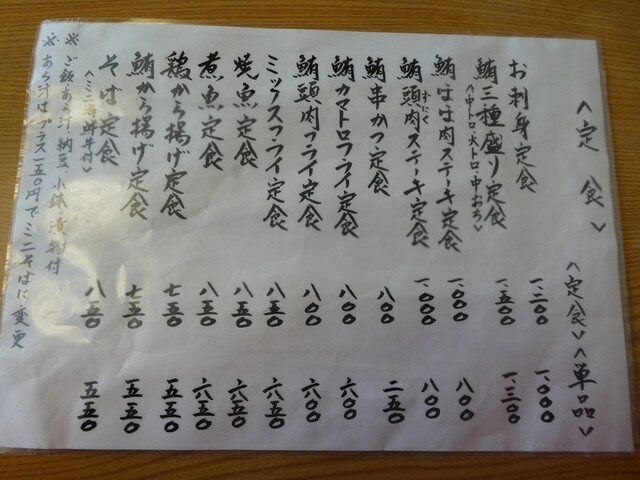 ＜定食＞
＜定食＞＜単品＞
お刺身定食 一、二〇〇 一、〇〇〇
鮪三種盛り定食 一、五〇〇 一、三〇〇
＜中トロ・大トロ・中おち＞
鮪ほほ肉ステーキ定食 一、〇〇〇 八〇〇
鮪頭肉ステーキ定食 一、〇〇〇 八〇〇
ずにく
鮪串かつ定食 八〇〇 二五〇
鮪カマトロフライ定食 八〇〇 六〇〇
鮪頭肉フライ定食 八〇〇 六〇〇
ミックスフライ定食 八五〇 六五〇
焼魚定食 八五〇 六五〇
煮魚定食 八五〇 六五〇
鶏から揚げ定食 七五〇 五五〇
鮪から揚げ定食 七五〇 五五〇
そば定食 八五〇 五五〇
＜ミニ海鮮丼付＞
※ご飯・あら汁・納豆、小鉢・漬物付
※あら汁はプラス一五〇円でミニそばに変更